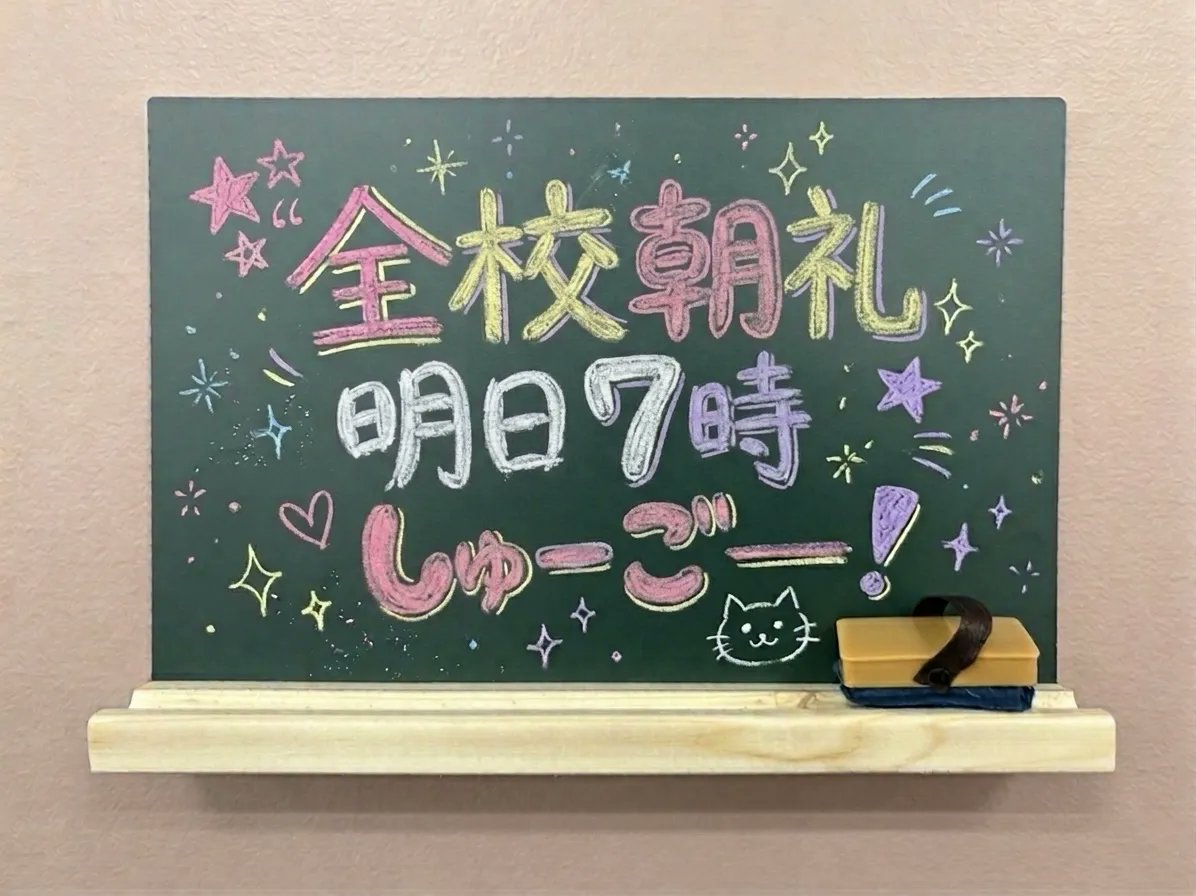 全校朝礼
明日7時
しゅーごー!